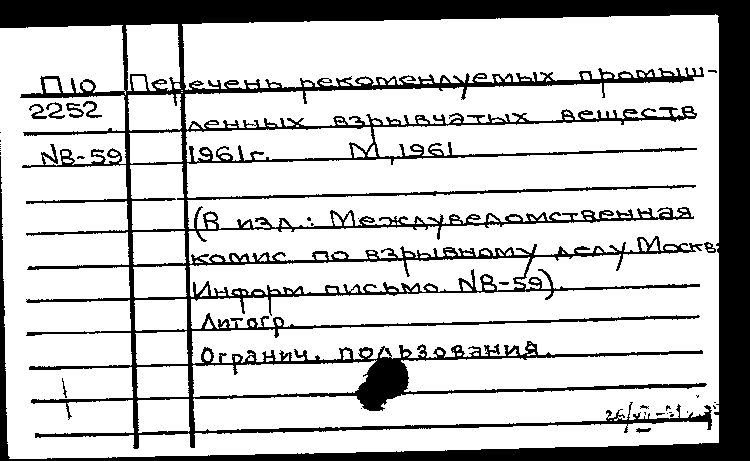 П10 Перечень рекомендуемых промыш-
2252 ленных взрывчатых веществ
NВ-59 1961г. М., 1961
(В изд.: Междуведомственная
комис. по взрывному делу. Москва
Информ. письмо. NВ-59).
Литогр.
Огранич. пользования.